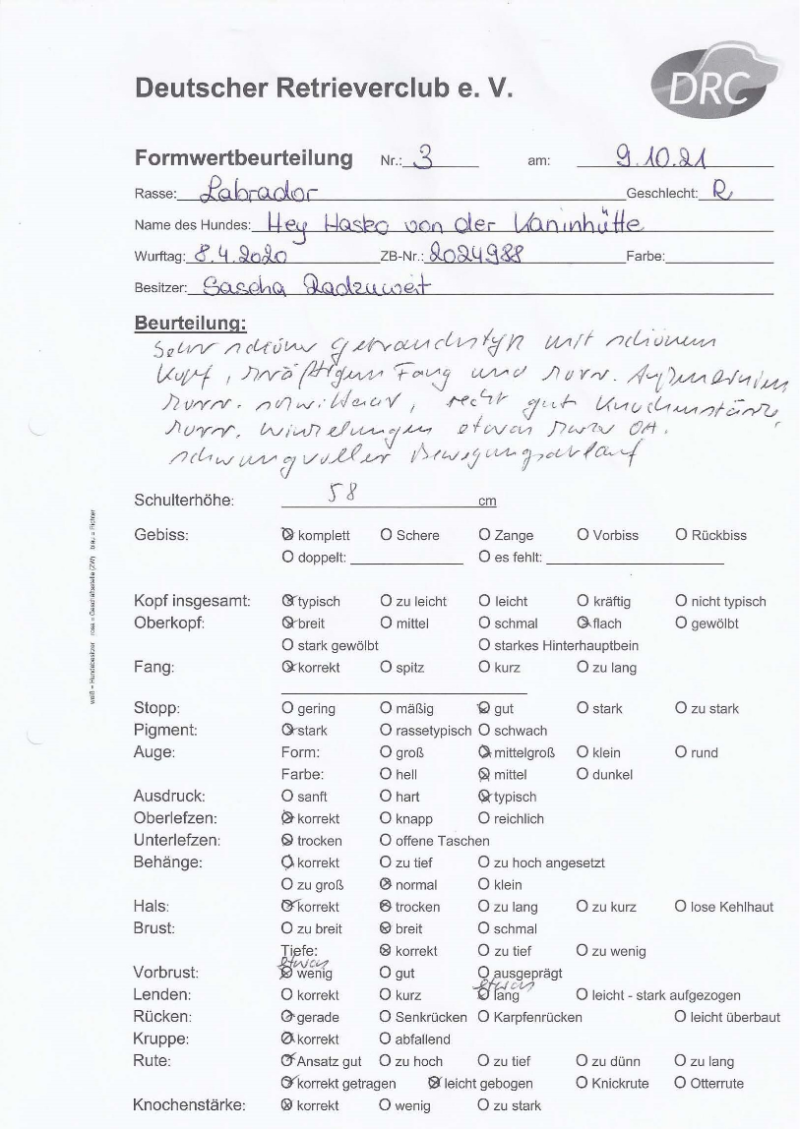 Deutscher Retrieverclub e. V.
DRC
Formwertbeurteilung Nr.: 3 am: 9.10.21
Rasse: Labrador Geschlecht: R
Name des Hundes: Hey Hasko von der Kaninhütte
Wurftag: 8.4.2020 ZB-Nr.: 2024988 Farbe:
Besitzer: Sascha Radzuweit
Beurteilung:
Sehr schöner Gebrauchstyp mit schönem
Kopf, kräftigem Fang und korr.
korr. recht gut Knochenstärke,
korr. Winkelungen etwas kurz OA.
schwungvoller Bewegungsablauf
Schulterhöhe: 58 cm
Gebiss: komplett O Schere O Zange O Vorbiss O Rückbiss
O doppelt: O es fehlt:
Kopf insgesamt: typisch O zu leicht O leicht O kräftig O nicht typisch
Oberkopf: breit O mittel O schmal flach O gewölbt
O stark gewölbt O starkes Hinterhauptbein
Fang: korrekt O spitz O kurz O zu lang
Stopp: O gering O mäßig gut O stark O zu stark
Pigment: stark O rassetypisch O schwach
Auge: Form: O groß mittelgroß O klein O rund
Farbe: O hell mittel O dunkel
Ausdruck: O sanft O hart typisch
Oberlefzen: korrekt O knapp O reichlich
Unterlefzen: trocken O offene Taschen
Behänge: korrekt O zu tief O zu hoch angesetzt
O zu groß normal O klein
Hals: korrekt trocken O zu lang O zu kurz O lose Kehlhaut
Brust: O zu breit breit O schmal
Tiefe: korrekt O zu tief O zu wenig
etwas
Vorbrust: wenig O gut O ausgeprägt
etwas
Lenden: O korrekt O kurz lang O leicht - stark aufgezogen
Rücken: gerade O Senkrücken O Karpfenrücken O leicht überbaut
Kruppe: korrekt O abfallend
Rute: Ansatz gut O zu hoch O zu tief O zu dünn O zu lang
korrekt getragen leicht gebogen O Knickrute O Otterrute
Knochenstärke: korrekt O wenig O zu stark
weiß = Hundebesitzer rosa = Geschäftsstelle (ZW) blau = Richter